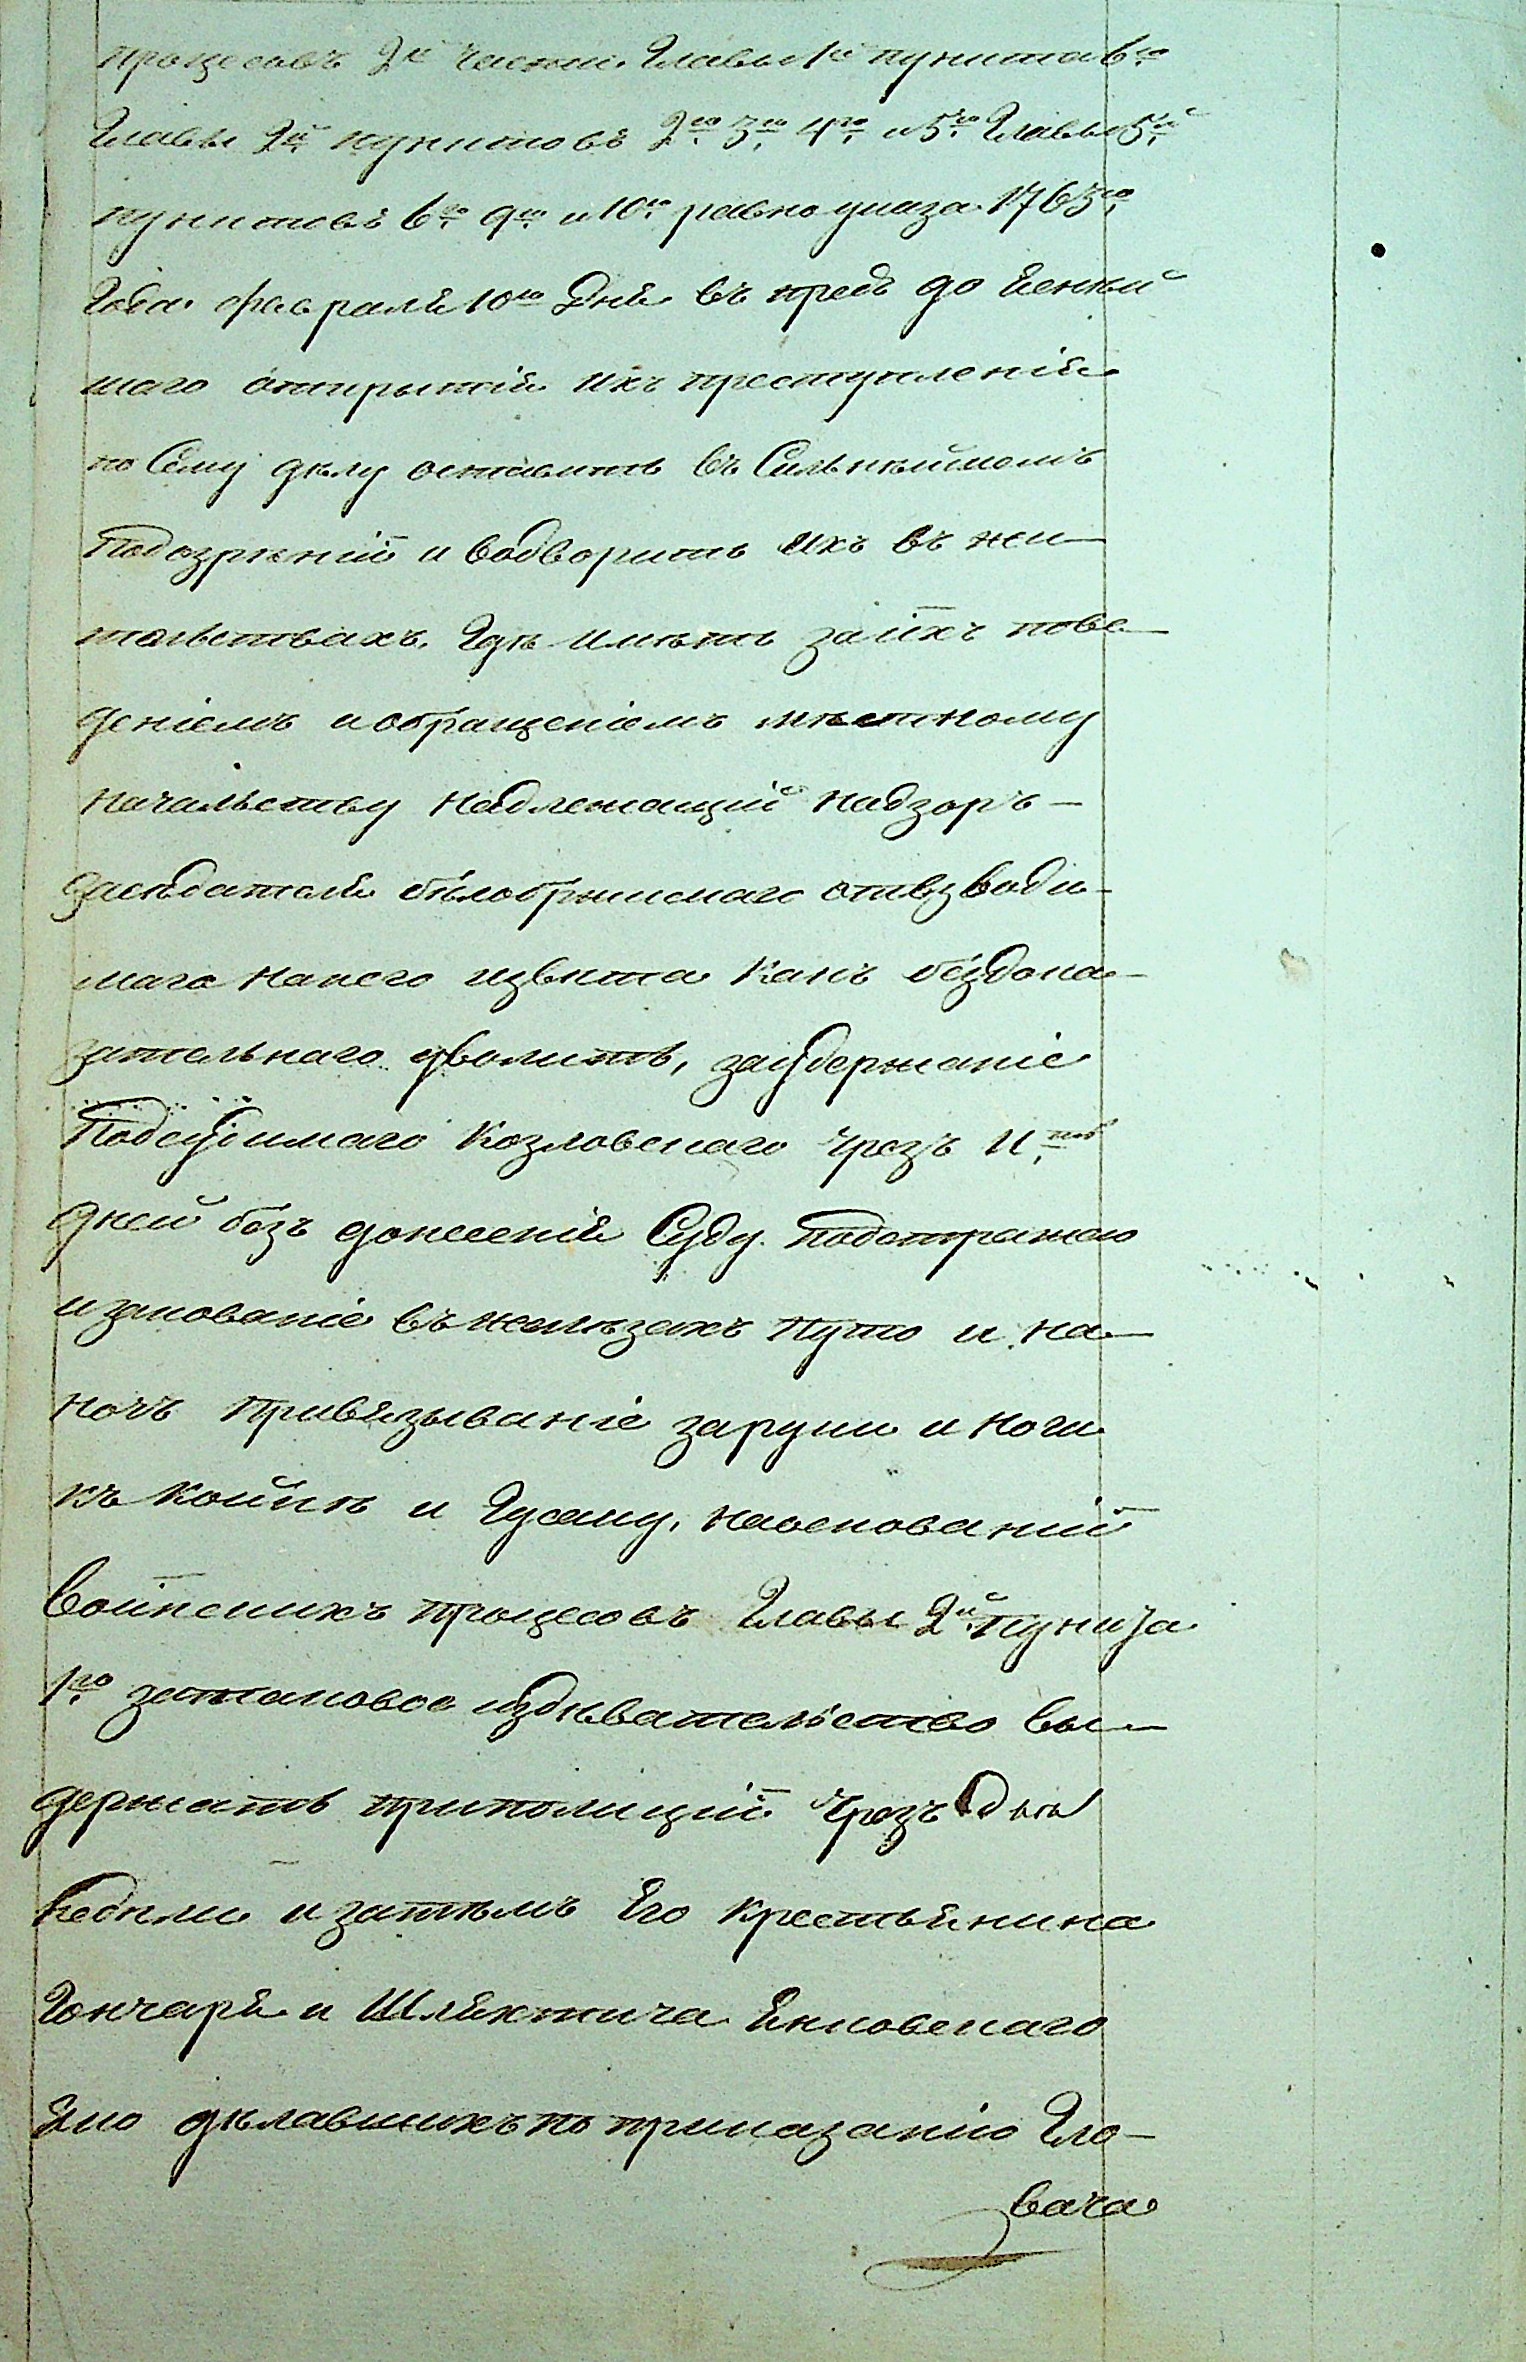 процесовъ 2й части. Главы 1й пункта 6го
Главы 2й пунктовъ 2го 3го 4го и 5го Главы 5й
пунктовъ 6го 9го и 10го равно указа 1763го
Года февраля 10го Дня въ предь до ясней
шаго открытія ихъ преступленія
по Сему дѣлу оставить въ Сильнѣйшемъ
Подозрѣніи и водворить ихъ въ жи–
тельствахъ. Гдѣ имѣть за ихъ пове–
деніемъ и обращеніемъ мѣстному
начальству надлежащій надзоръ –
засѣдателя отъ взводи–
маго на него извѣта какъ бездока–
зательнаго уволить, за удержаніе
Подсудимаго Козловскаго чрезъ 11ть
дней безъ донесенія Суду. Подстражею
и закованіе въ желѣзахъ путо и на–
ночъ привязываніе за руки и ноги
къ койкѣ и Гусаку, на основаніи
воинскихъ процесовъ Главы 2й Пункта
1го за таковое издѣвательство вы–
держать при полиціи чрезъ Двѣ
недѣли и затѣмъ Его крестьянина
Гончаря и Шляхтича Янковскаго
яко дѣлавшихъ по приказанію Гло–
вача